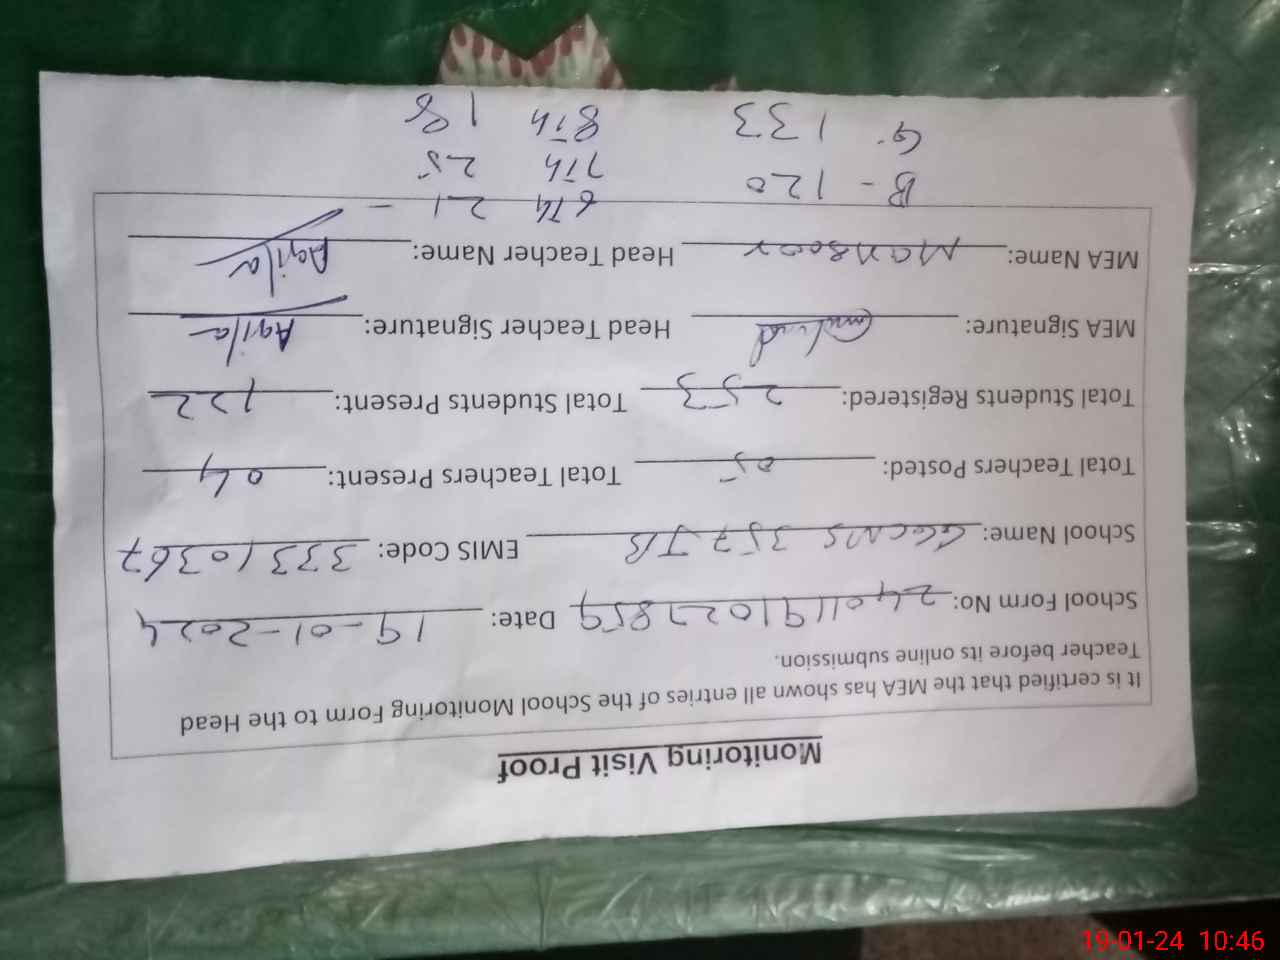 Monitoring Visit Proof
It is certified that the MEA has shown all entries of the School Monitoring Form to the Head
Teacher before its online submission.
School Form No: 240119102 859 Date: 19-01-2024
School Name: GGCMS 357 JB EMIS Code: 33310367
Total Teachers Posted: 05 Total Teachers Present: 04
Total Students Registered: 253 Total Students Present: 122
MEA Signature: Head Teacher Signature: Aqila
MEA Name: Mansoor Head Teacher Name: Aqila
B - 120 6th 21 -
G. 133 7th 25
8th 18
19-01-24 10:46